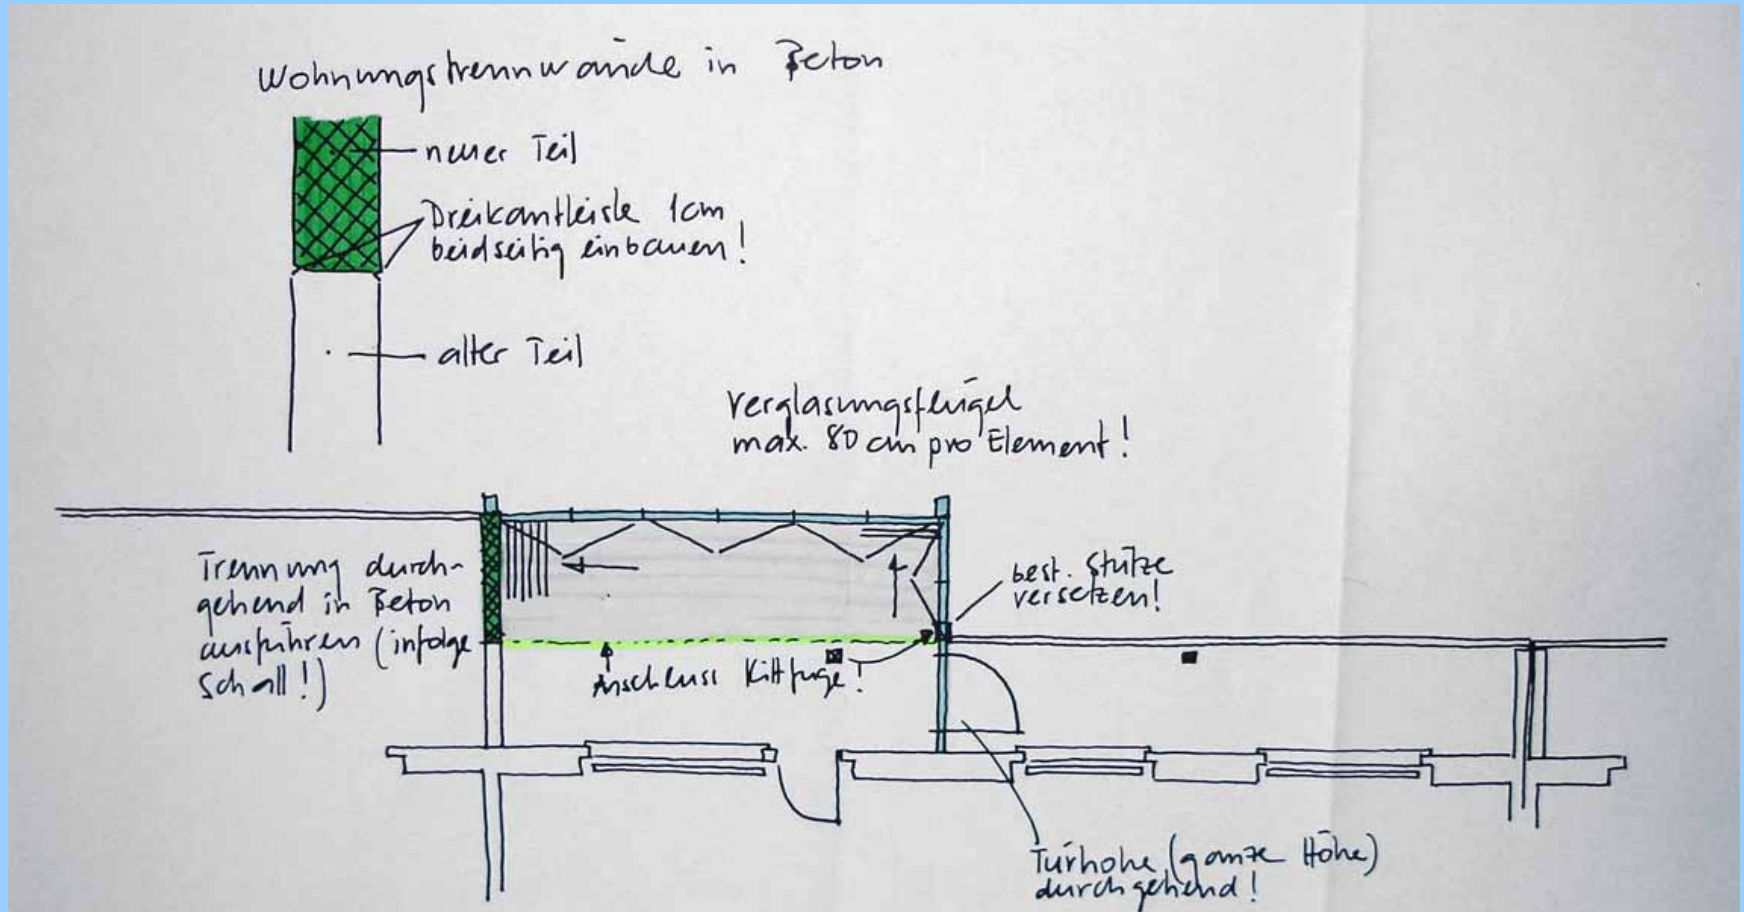 Wohnungstrennwände in Beton
neuer Teil
Dreikantleiste 1cm
beidseitig einbauen!
alter Teil
Verglasungsflügel
max. 80 cm pro Element!
Trennung durch-
gehend in Beton
ausführen (infolge
Schall!)
best. Stütze
versetzen!
Anschluss Kittfuge!
Türhöhe (ganze Höhe)
durchgehend!